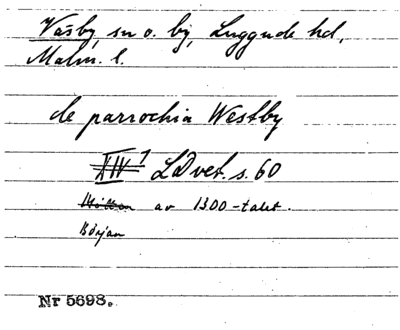 Väsby, sn o. by, Luggude hd,
Malm. l.
de parrochia Westby
XIV 1 LD vet. s. 60
Mitten av 1300-talet.
Början
Nr 5698.